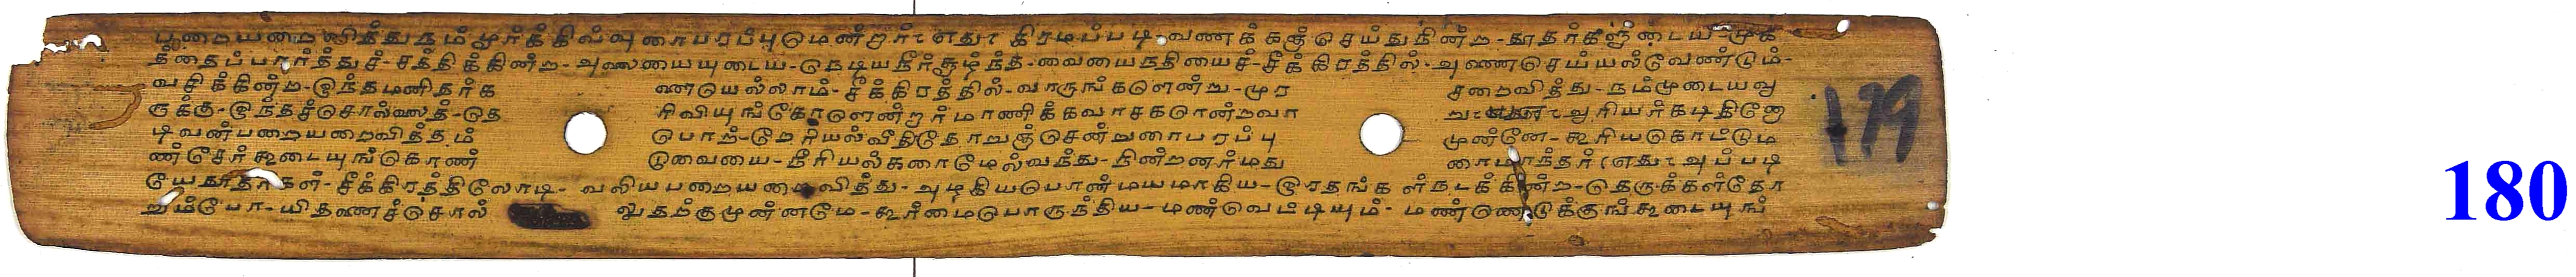 பறையறைவித்து நம்மூர்க்கில்வுரைபரப்புமென்றார். எது. கிரமப்படி வணக்கஞ்செய்துநின்ற - தூதர்களுடைய - முக
த்தைப்பார்த்துச் - சத்திக்கின்ற - அலையையுடைய - நெடியநீர்சூழ்ந்த - வையைநதியைச் - சீக்கிரத்தில் - அணைசெய்யல்வேண்டும் -
வசிக்கின்ற - இந்தமனிதர்க ளெயல்லாம் - சீக்கிரத்தில் - வாருங்களென்று - முர சறைவித்து - நம்முடையவு
ரிவியுங்கோளென்றார் மாணிக்கவாசகரென்றவா
டிவன்பறையறைவித்தம் பொற் - றெரியல்வீதிதோறுஞ்சென்றுரைபரப்பு முன்னே - கூரியகொட்டும
ண்சேர்கூடையுங்கொண் டுவையை - நீரியல்கரைமேல்வந்து - நின்றனர்மது ரைமாந்தர் எது. அப்படி
யேதூதர்கள் - சீக்கிரத்திலோடி - வலியபறையறைவித்து - அழகியபொன்மயமாகிய - இரதங்கள்நடக்கின்ற - தெருக்கள்தோ
றும்போ - யிதனைச்சொல் லுதற்குமுன்னமே - கூர்மைபொருந்திய - மண்வெட்டியும் - மண்ணெடுக்குங்கூடையுங்
179
180